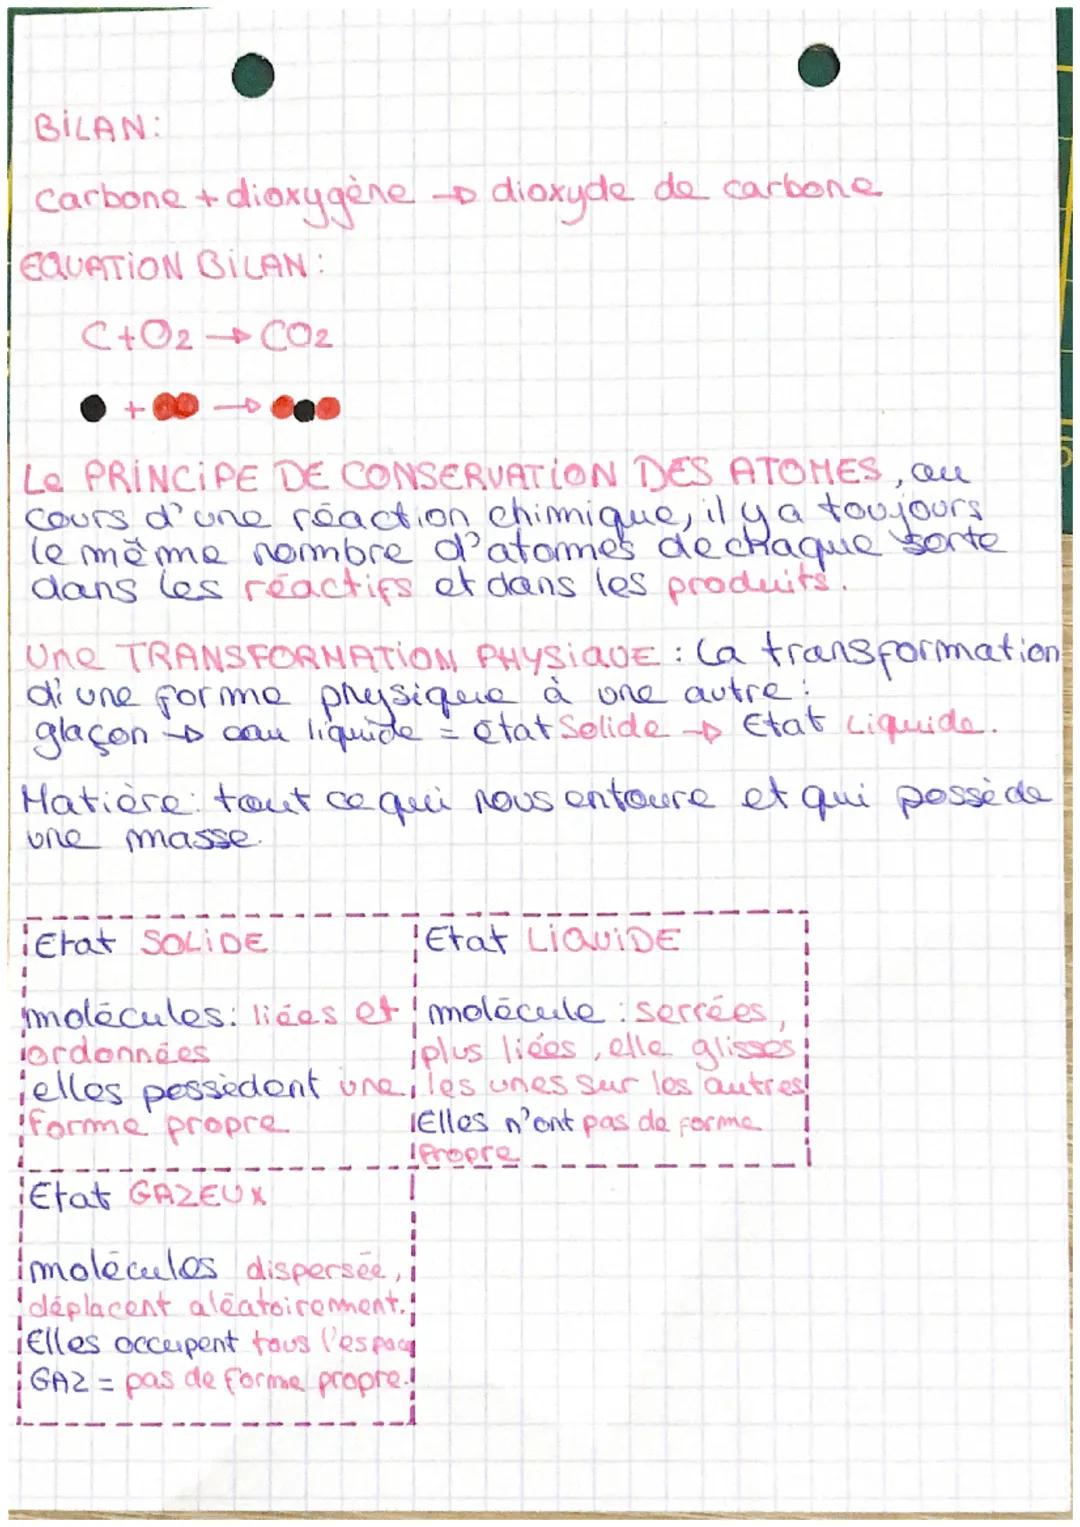 BILAN:
carbone + dioxygène → dioxyde de carbone
EQUATION BILAN:
C+O2 → CO2
+ →
Le PRINCIPE DE CONSERVATION DES ATOMES, au
cours d'une réaction chimique, il y a toujours
le même nombre d'atomes de chaque sorte
dans les réactifs et dans les produits.
Une TRANSFORMATION PHYSIQUE : la transformation
d'une forme physique à une autre :
glaçon → eau liquide = état Solide → Etat Liquide.
Matière: tout ce qui nous entoure et qui possède
une masse.
Etat SOLIDE
molécules: liées et
ordonnées
elles possèdent une
forme propre
Etat LIQUIDE
molécule : serrées,
plus liées, elle glisses
les unes sur les autres
Elles n'ont pas de forme
Propre
Etat GAZEUX
molécules dispersée,
déplacent aléatoirement.
Elles occupent tous l'espac
GAZ = pas de forme propre.